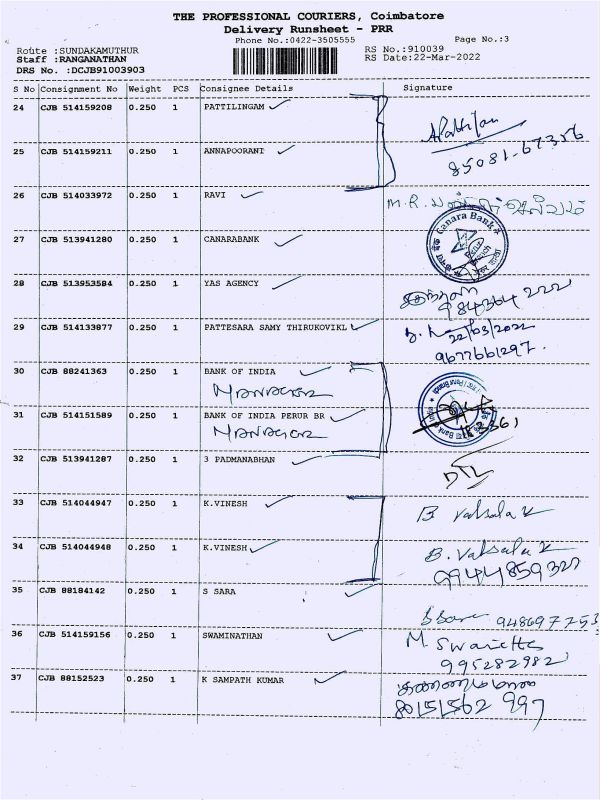 THE PROFESSIONAL COURIERS, Coimbatore
Delivery Runsheet - PRR
Phone No.:0422-3505555 Page No.:3
Route :SUNDAKAMUTHUR RS No.:910039
Staff :RANGANATHAN RS Date:22-Mar-2022
DRS No. :DCJB91003903
S No Consignment No Weight PCS Consignee Details Signature
24 CJB 514159208 0.250 1 PATTILINGAM
25 CJB 514159211 0.250 1 ANNAPOORANI 85081-67356
26 CJB 514033972 0.250 1 RAVI M.R.
27 CJB 513941280 0.250 1 CANARABANK Canara Bank
28 CJB 513953584 0.250 1 YAS AGENCY 984364222
29 CJB 514133877 0.250 1 PATTESARA SAMY THIRUKOVIKL 22/03/2022
9677661297.
30 CJB 88241363 0.250 1 BANK OF INDIA
MANAGER
31 CJB 514151589 0.250 1 BANK OF INDIA PERUR BR
MANAGER
32 CJB 513941287 0.250 1 3 PADMANABHAN
33 CJB 514044947 0.250 1 K.VINESH B Valsala K
34 CJB 514044948 0.250 1 K.VINESH B. Valsala K
9944859327
35 CJB 88184142 0.250 1 S SARA
9486977253
36 CJB 514159156 0.250 1 SWAMINATHAN M.
995282982
37 CJB 88152523 0.250 1 K SAMPATH KUMAR
80151562 997